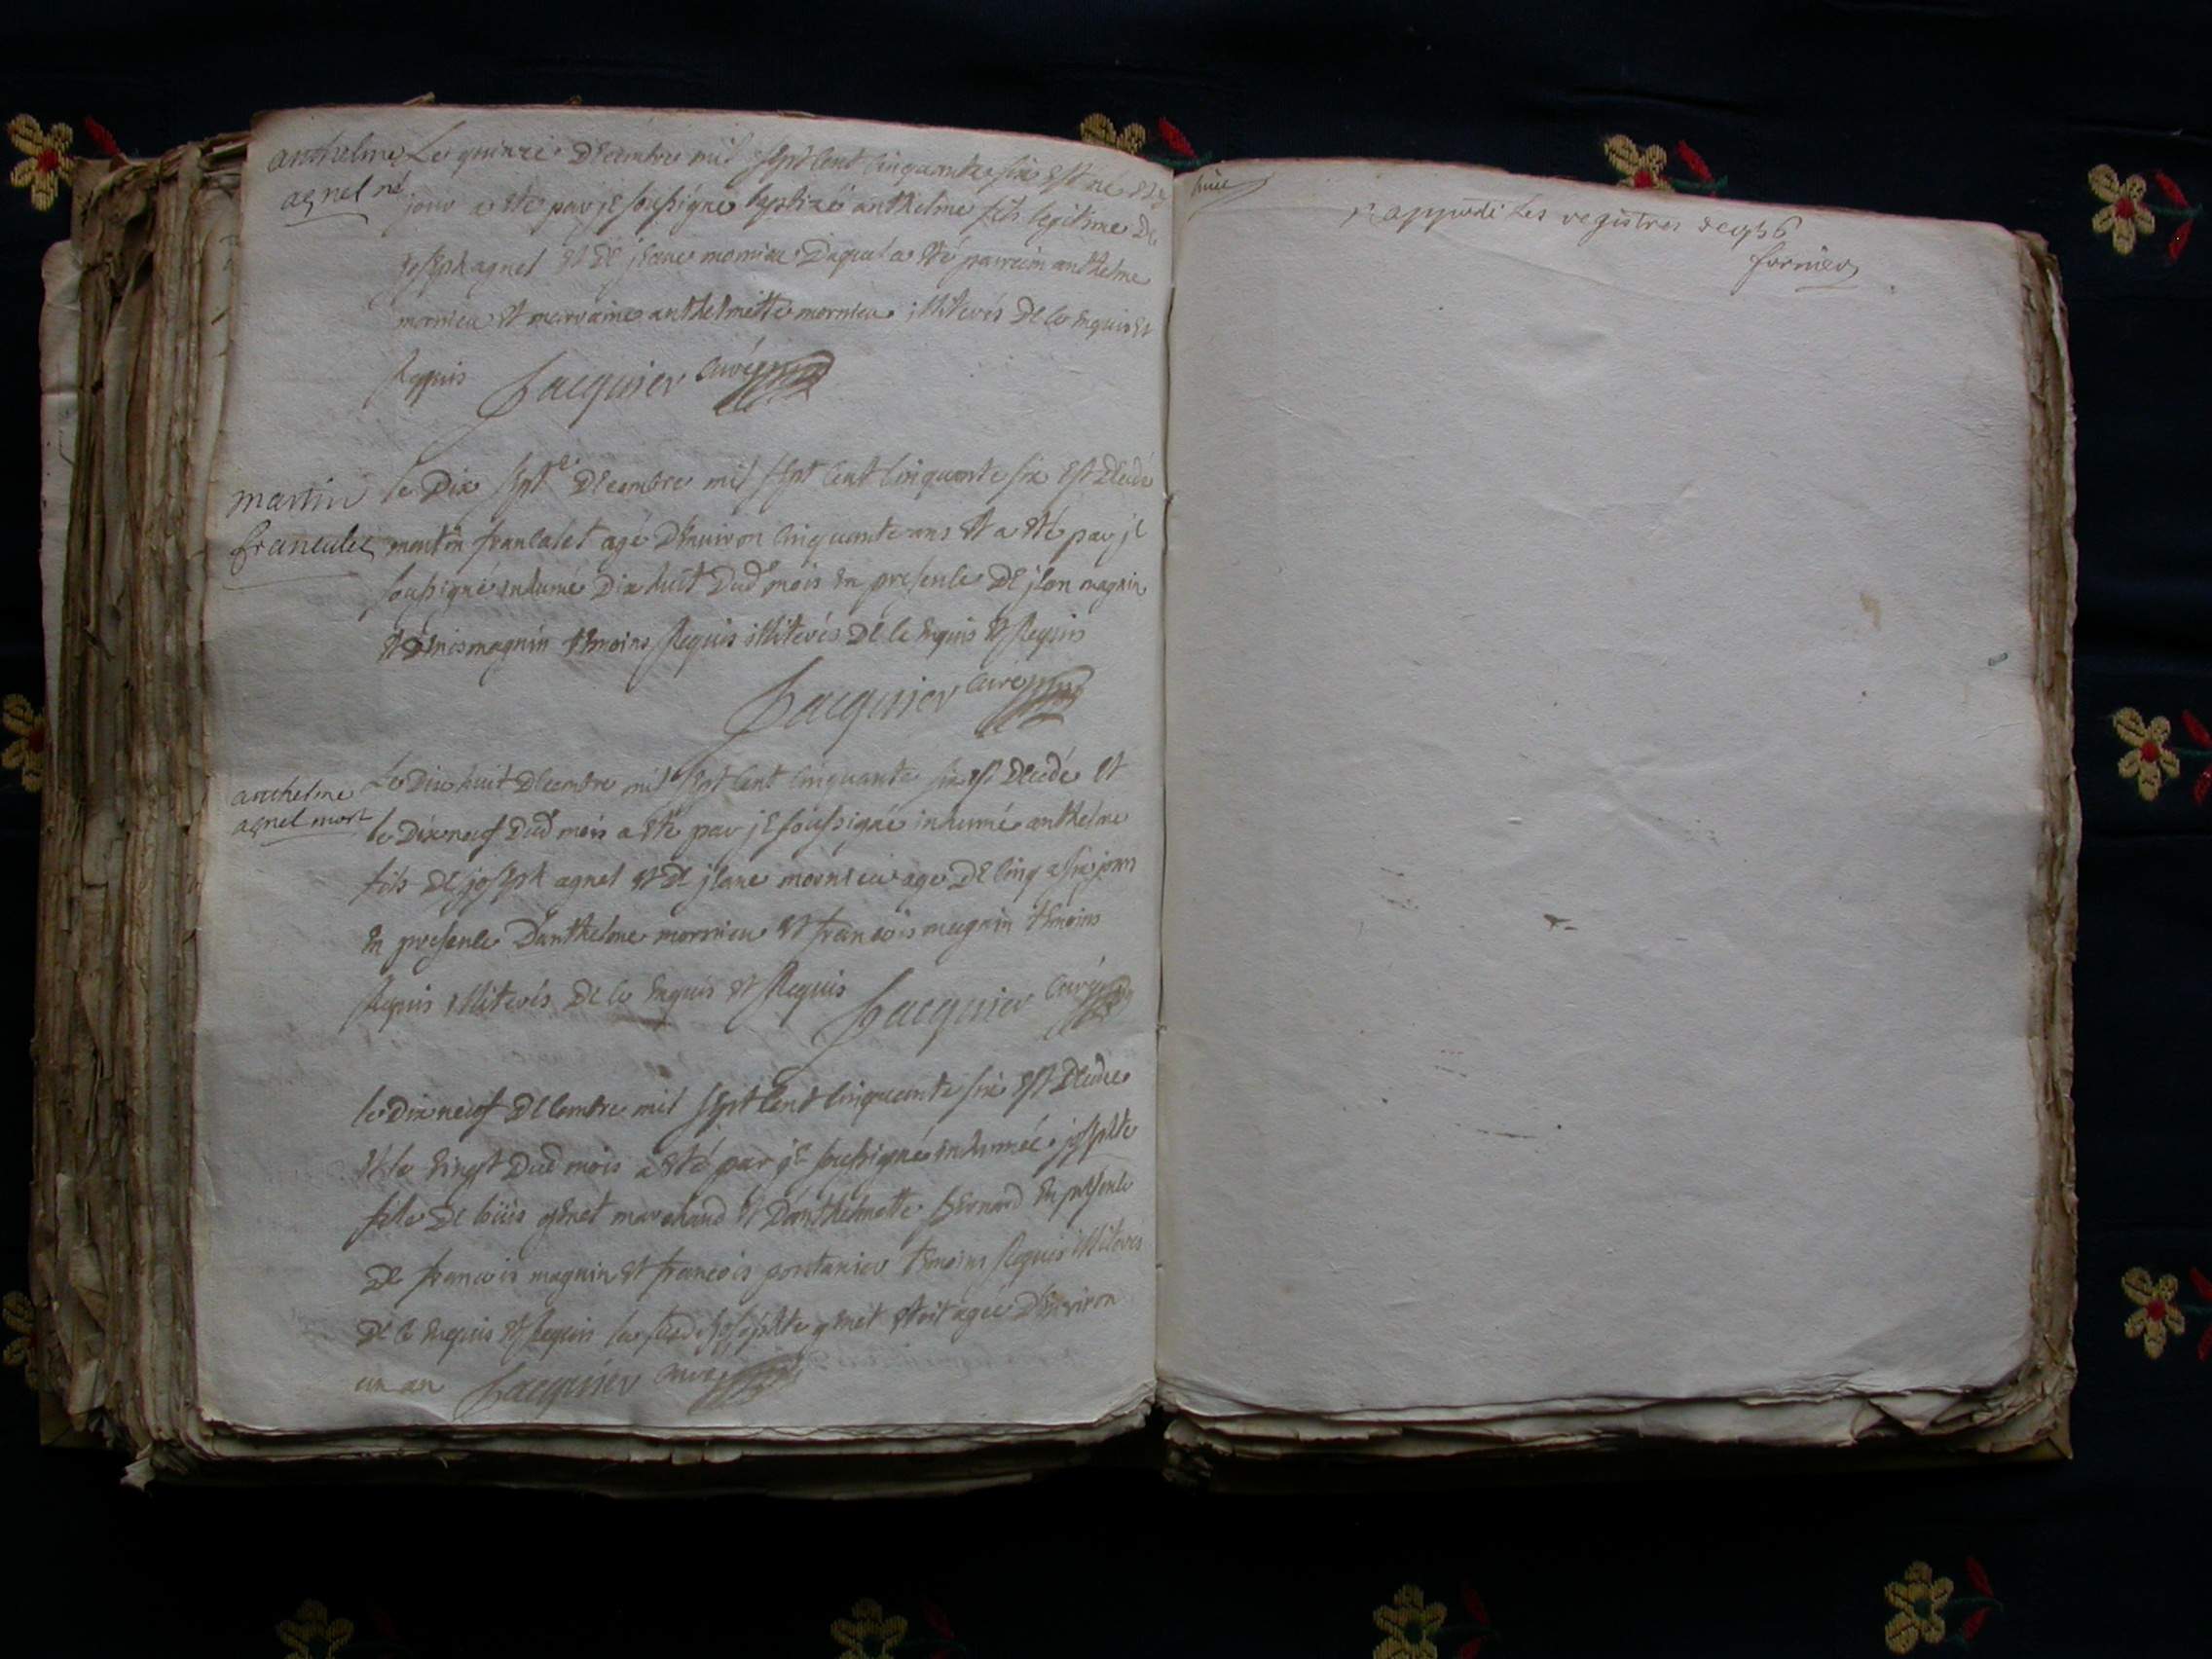 anthelme
agnel né
Le quinze Decembre mil sept cent cinquante six est né et
jour a eté par je soussigné baptizé anthelme fils legitime De
joseph agnel et de jeane mornieu Duquel a eté parrein anthelme
mornieu et marraine anthelmette mornieu illiterés De ce enquis et
Requis Jacquier curé
martin
francalet
le Dix sept Decembre mil sept cent cinquante six est Decedé
martin francalet agé D'environ cinquante ans et a eté par je
soussigné inhumé Dix huit Dud mois en presence De jean magnin
et Denis magnin temoins Requis illiterés De ce enquis et Requis
Jacquier curé
anthelme
agnel mort
Le Dix huit Decembre mil sept cent cinquante six est Decedé et
le Dix neuf Dud mois a eté par je soussigné inhumé anthelme
fils De joseph agnel et De jeane mornieu agé De cinq a six jours
en presence D'anthelme mornieu et francois magnin temoins
Requis illiterés De ce enquis et Requis Jacquier curé
le Dix neuf Decembre mil sept cent cinquante six est Decedee
et le vingt Dud mois a eté par je soussigné inhumée josephte
fille De genet marchand et D'anthelmette Bernard en presence
De francois magnin et francois pontanier temoins Requis illiterés
De ce enquis et Requis josephte genet etoit agée D'environ
un an Jacquier curé
Les registres de 1756